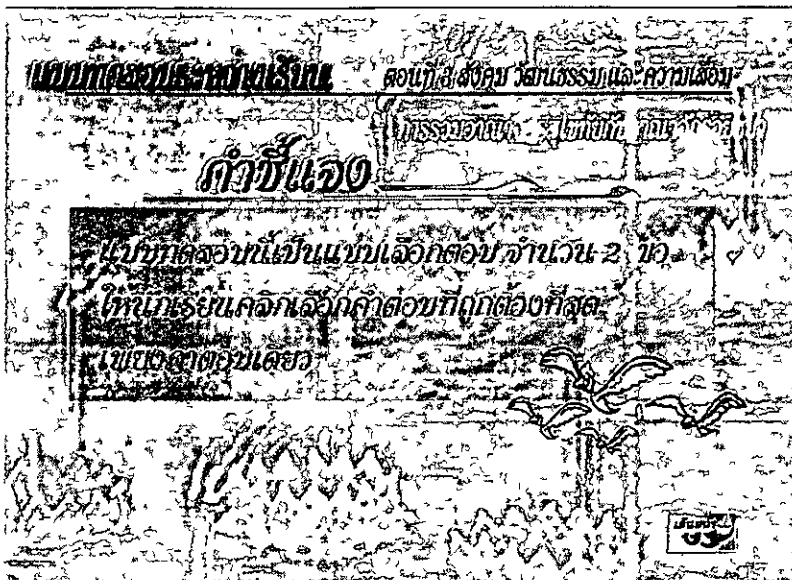 แบบทดสอบระหว่างเรียน
ตอนที่ 3 สังคม วัฒนธรรม และความเสื่อม
คำชี้แจง
แบบทดสอบนี้เป็นแบบเลือกตอบ จำนวน 2 ข้อ
ให้นักเรียนคลิกเลือกคำตอบที่ถูกต้องที่สุด
เพียงคำตอบเดียว